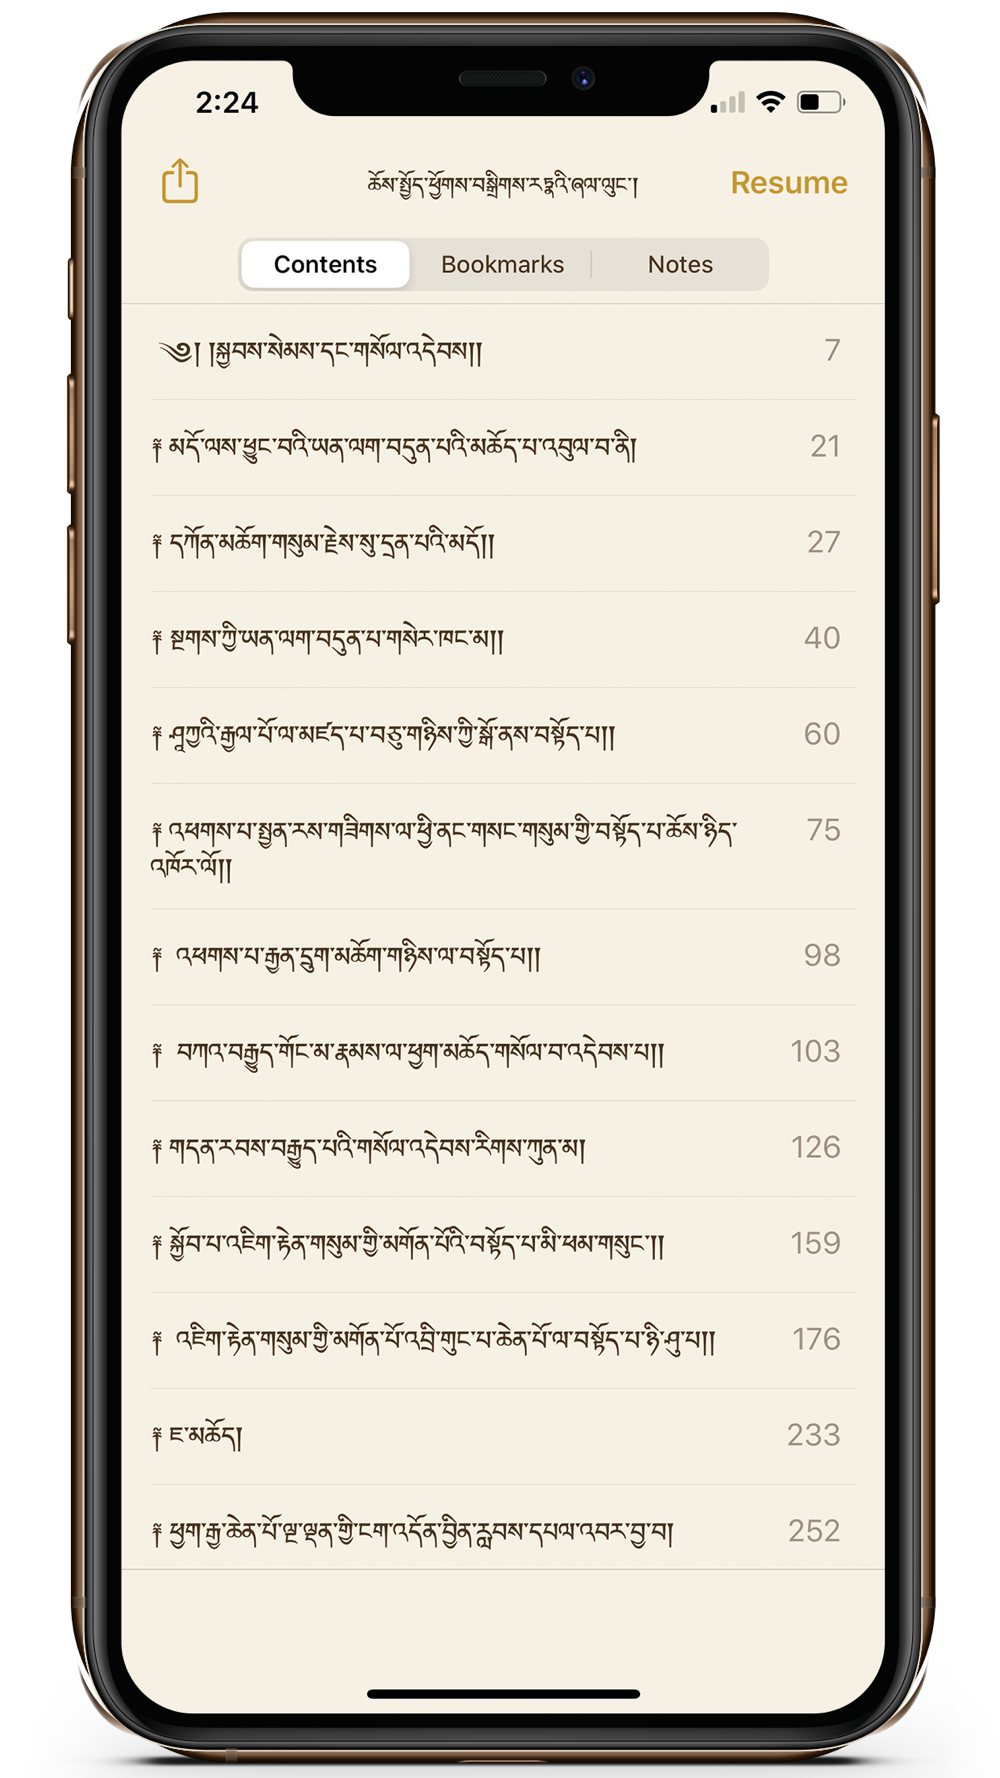 2:24
ཆོས་སྤྱོད་ཕྱོགས་བསྒྲིགས་རཏྣའི་ཞལ་ལུང་།
Resume
Contents
Bookmarks
Notes
༄། །སྐྱབས་སེམས་དང་གསོལ་འདེབས།། 7
༈ མདོ་ལས་ཕྱུང་བའི་ཡན་ལག་བདུན་པའི་མཆོད་པ་འབུལ་བ་ནི། 21
༈ དཀོན་མཆོག་གསུམ་རྗེས་སུ་དྲན་པའི་མདོ།། 27
༈ སྔགས་ཀྱི་ཡན་ལག་བདུན་པ་གསེར་ཁང་མ།། 40
༈ ཤཱཀྱའི་རྒྱལ་པོ་ལ་མཛད་པ་བཅུ་གཉིས་ཀྱི་སྒོ་ནས་བསྟོད་པ།། 60
༈ འཕགས་པ་སྤྱན་རས་གཟིགས་ལ་ཕྱི་ནང་གསང་གསུམ་གྱི་བསྟོད་པ་ཆོས་ཉིད་ 75
འཁོར་ལོ།།
༈ འཕགས་པ་རྒྱན་དྲུག་མཆོག་གཉིས་ལ་བསྟོད་པ།། 98
༈ བཀའ་བརྒྱུད་གོང་མ་རྣམས་ལ་ཕྱག་མཆོད་གསོལ་བ་འདེབས་པ།། 103
༈ གདན་རབས་བརྒྱུད་པའི་གསོལ་འདེབས་རིགས་ཀུན་མ། 126
༈ སྐྱོབ་པ་འཇིག་རྟེན་གསུམ་གྱི་མགོན་པོའི་བསྟོད་པ་མི་ཕམ་གསུང་།། 159
༈ འཇིག་རྟེན་གསུམ་གྱི་མགོན་པོ་འབྲི་གུང་པ་ཆེན་པོ་ལ་བསྟོད་པ་ཉི་ཤུ་པ།། 176
༈ ཇ་མཆོད། 233
༈ ཕྱག་རྒྱ་ཆེན་པོ་ལྔ་ལྡན་གྱི་ངག་འདོན་བྱིན་རླབས་དཔལ་འབར་བྱ་བ། 252